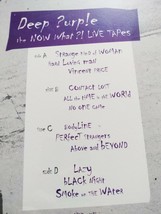 Deep Purple
the NOW What?! LIVE TAPes
side A Strange Kind of Woman
Hard Loving Man
Vincent Price
side B Contact Lost
All the Time in the World
No One Came
side C Bodyline
Perfect Strangers
Above and Beyond
side D Lazy
Black Night
Smoke on the Water